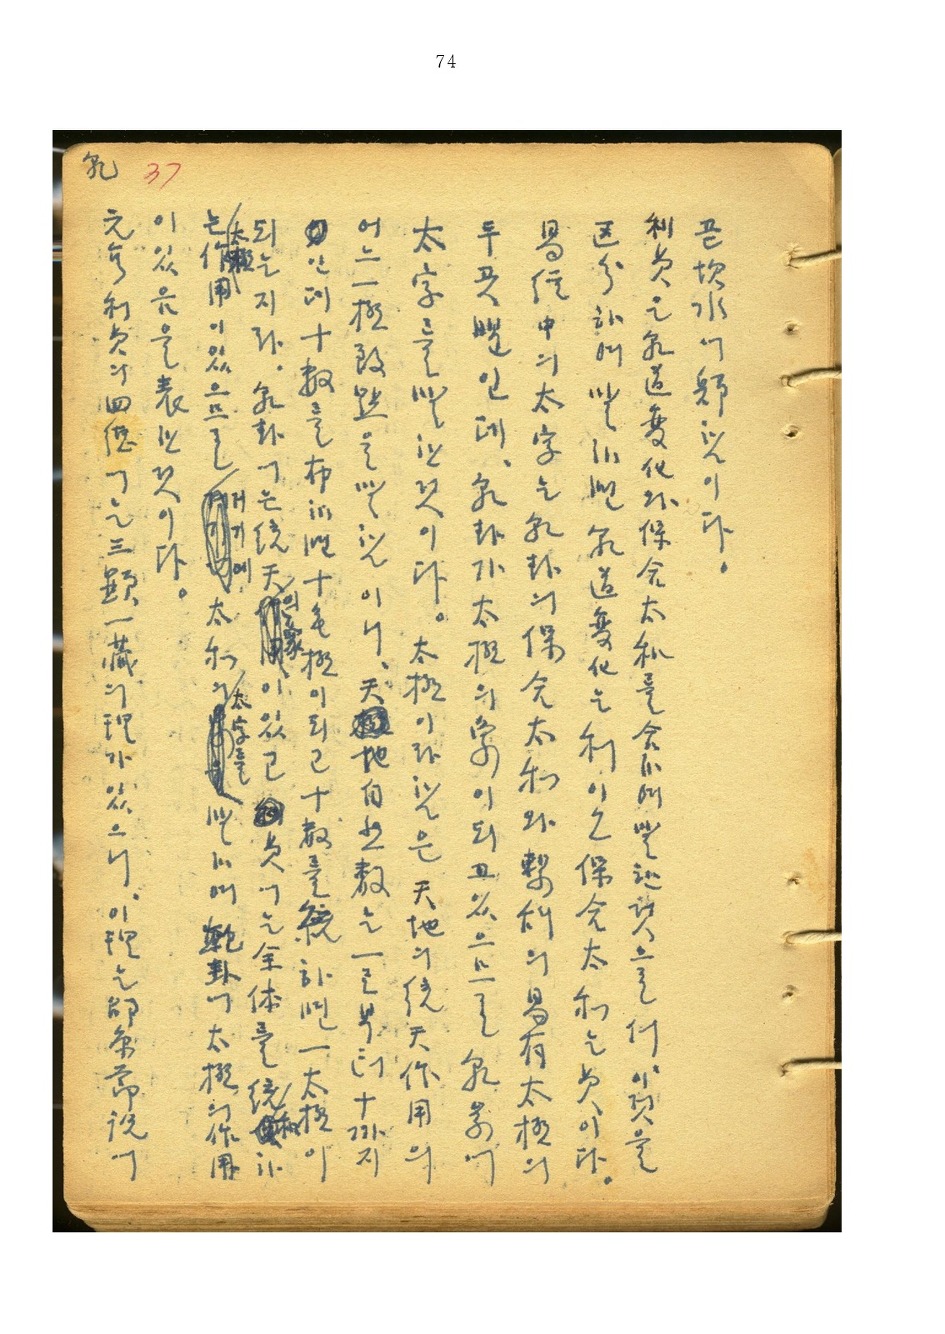 74
乾 37
은 坎水에 關함이다。
利貞은 乾道變化와 保合太和를 合하여 말한것으로서 이것을
区分하여 말하면 乾道變化는 利이오 保合太和는 貞이다。
易經中의 太字는 乾卦의 保合太和와 繫辭의 易有太極의
두곳뿐인데、乾卦가 太極의 象이 되고 있으므로 乾彖에
太字를 말한것이다。太極이라함은 天地의 統天作用의
어느 一極致點을 말함이니、天地自然數는 一로부터 十까지
인데 十數를 布하면 十无極이 되고 十數를 統하면 一太極이
되는지라、乾卦에는 統天의 象이 있고 貞에는 全体를 統
는 太極作用이 있으므로 거기에 太和의 太字를 말하여 乾卦에 太極의 作用
이 있음을 表한것이다。
元亨利貞의 四德에는 三顯一藏의 理가 있으니、이 理는 節